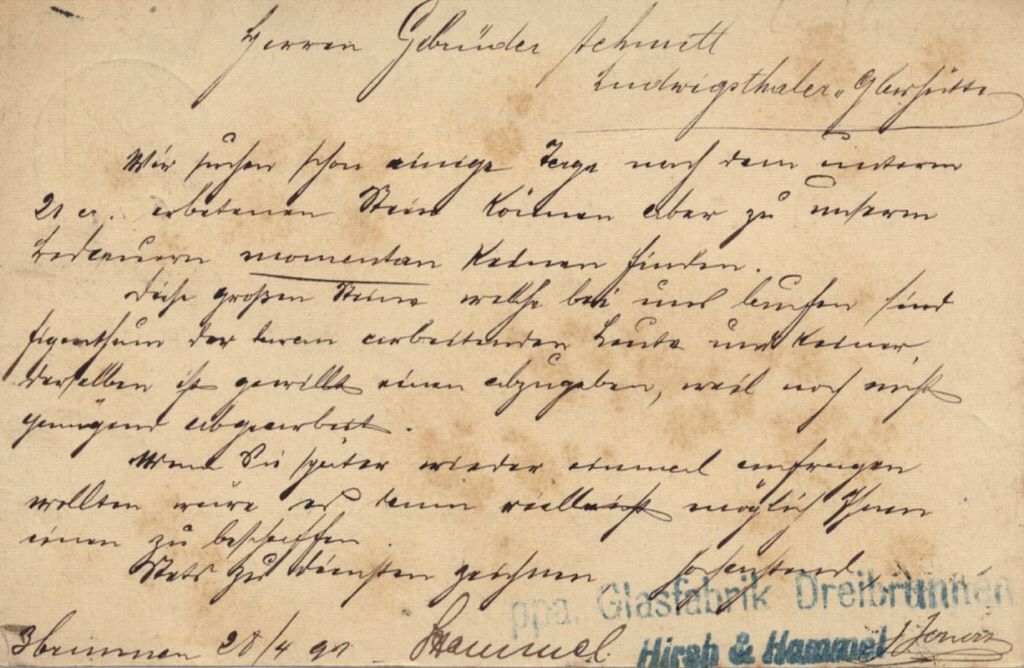 Herren Gebrüder Schmitt
Ludwigsthaler Glashütte
Wir suchen schon einige Tage nach dem unterm
21 cr. erbetenen Stein können aber zu unserm
Bedauern momentan keinen finden.
Diese großen Steine welche bei uns laufen sind
Eigenthum der daran arbeitenden Leute und keiner
derselben ist gewillt einen abzugeben, weil noch nicht
genügend abgearbeitet.
Wenn Sie später wieder einmal anfragen
wollten wäre es dann vielleicht möglich Ihnen
einen zu beschaffen.
Stets zu Diensten zeichnen Hochachtend
ppa. Glasfabrik Dreibrunnen
3brunnen 28/4 90 Hammel
Hirsh & Hammel